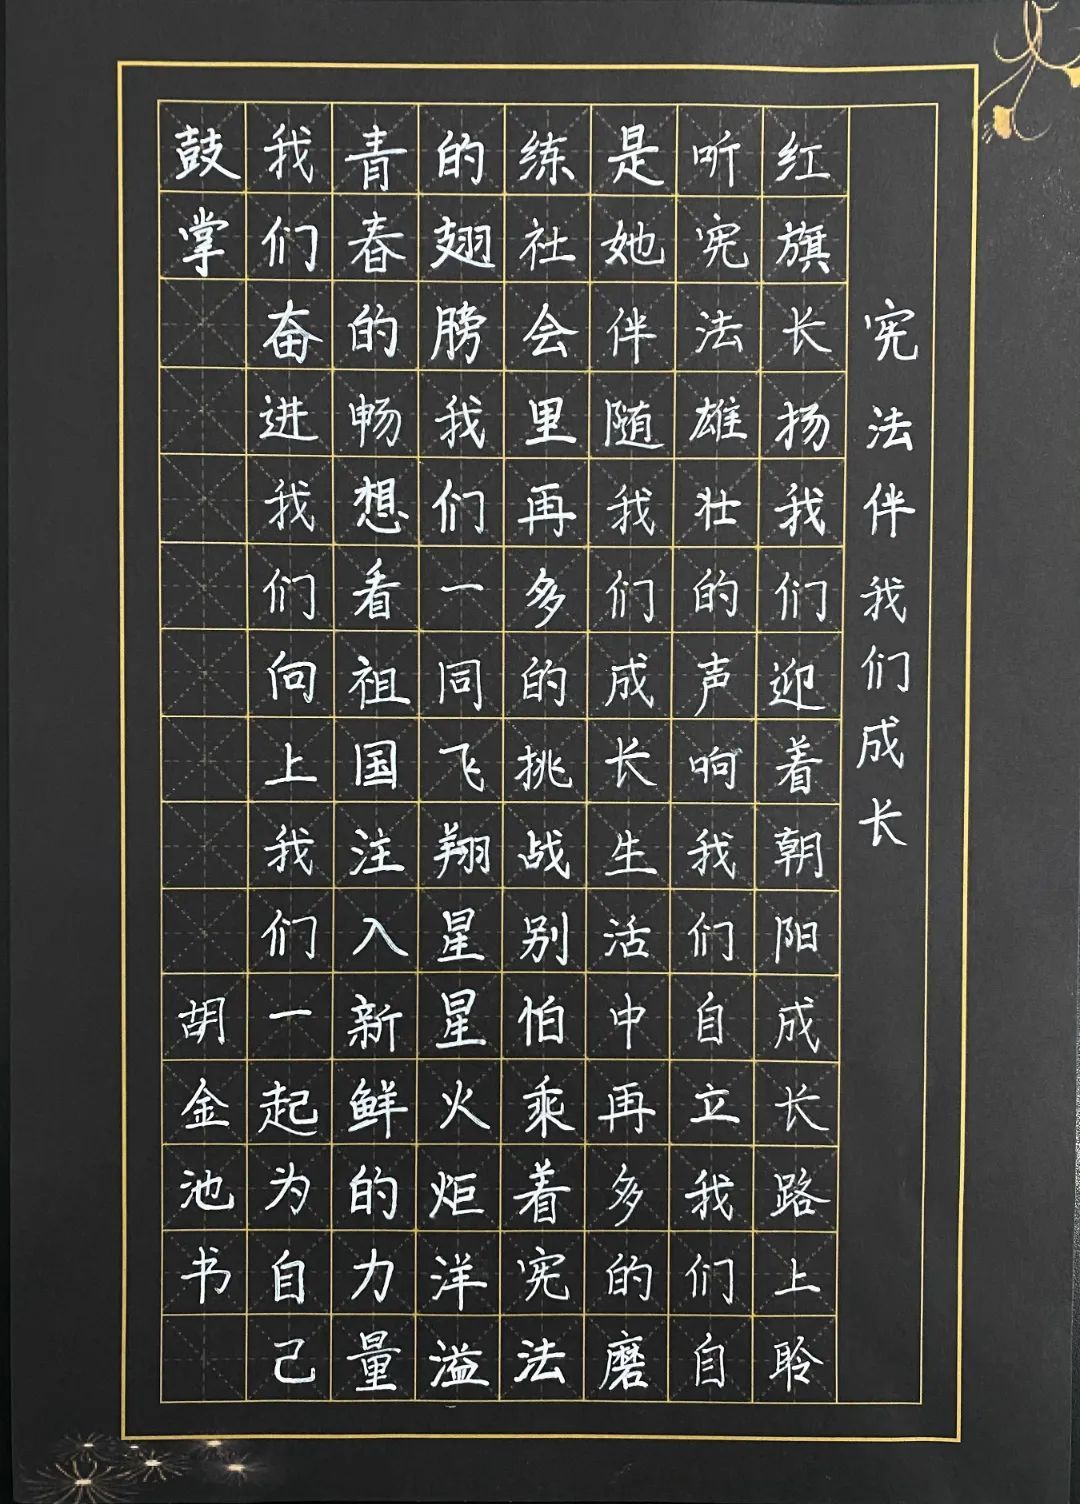 宪法伴我们成长
红旗长扬我们迎着朝阳成长路上聆
听宪法雄壮的声响我们自立我们自
是她伴随我们成长生活中再多的磨
练社会里再多的挑战别怕乘着宪法
的翅膀我们一同飞翔星星火炬洋溢
青春的畅想看祖国注入新鲜的力量
我们奋进我们向上我们一起为自己
鼓掌
胡金池书